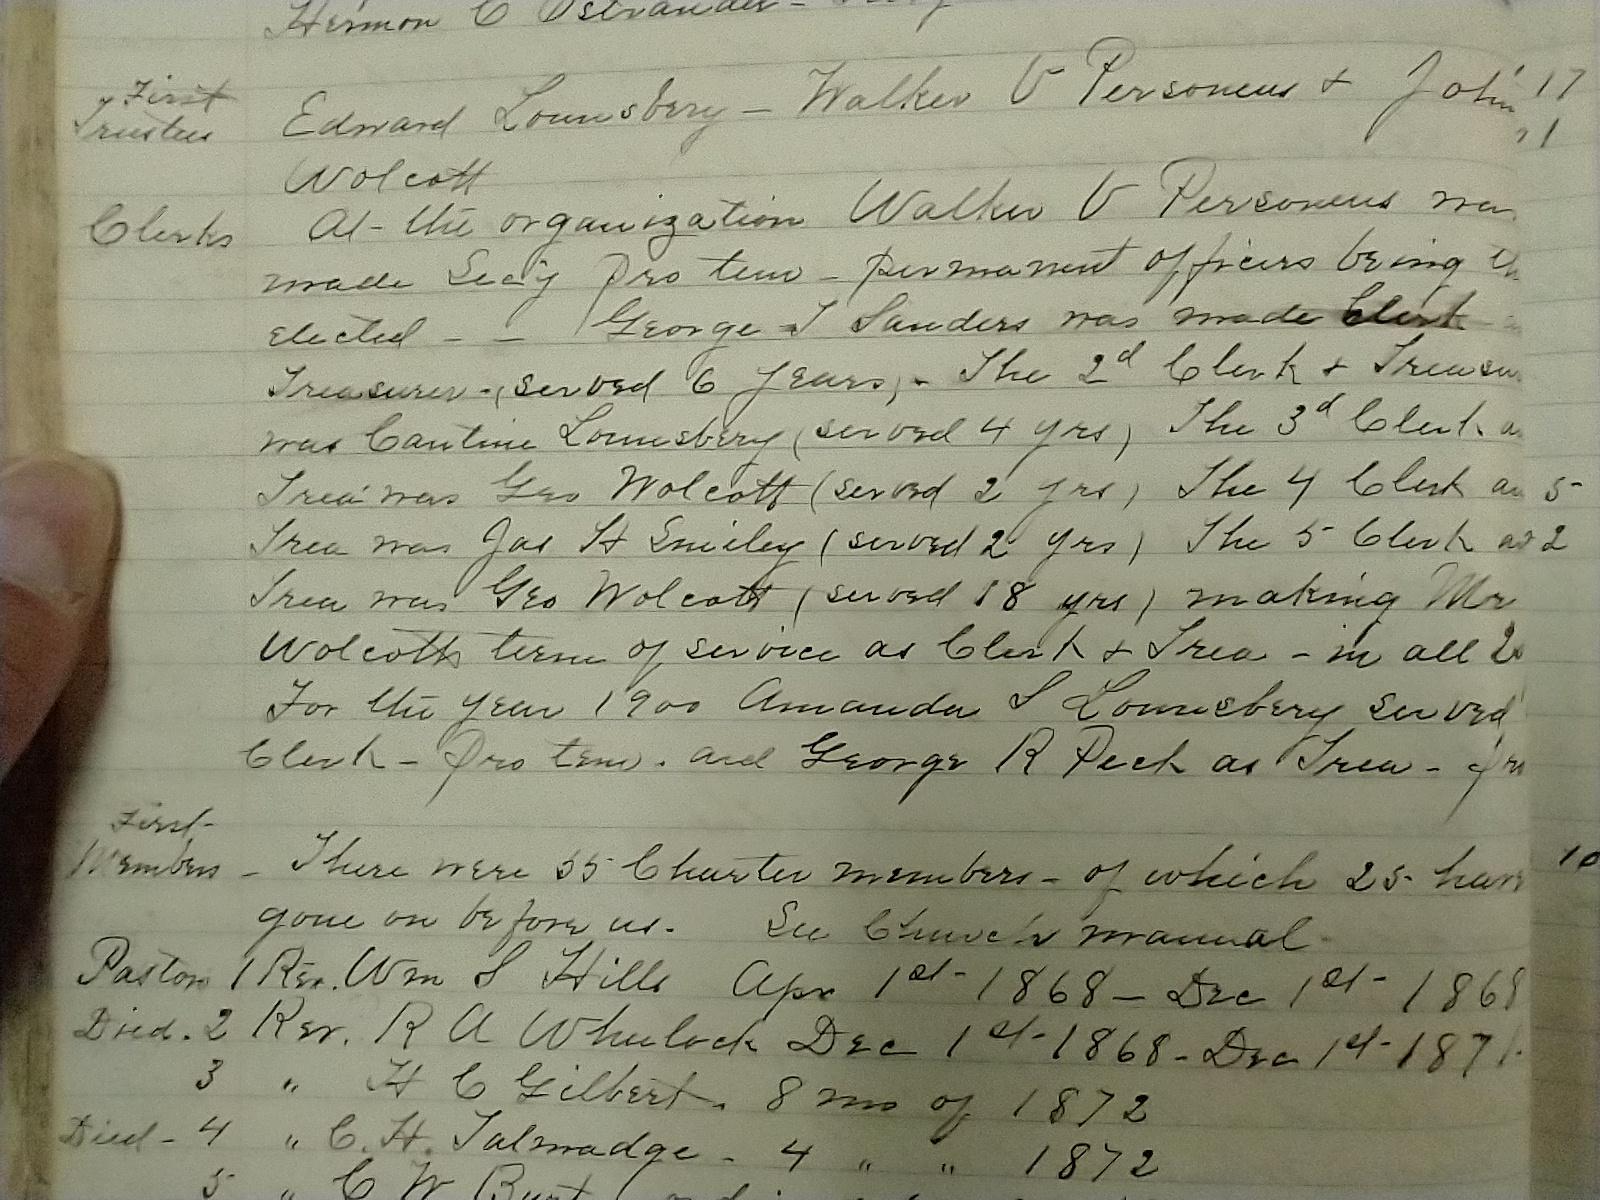 Hermon C Ostrander -
First
Trustees
Edward Lounsbery - Walker V Personeus & John
17
Wolcott
Clerks At the organization Walker V Personeus was
made Sec'y pro tem - permanent officers being
elected - - George I Sanders was made Clerk
Treasurer - (served 6 years) - The 2d Clerk &
was Cantine Lounsbery (served 4 yrs) The 3d Clerk
Trea was Geo Wolcott (served 2 yrs) The 4 Clerk
5
Trea was Jas H Smiley (served 2 yrs) The 5 Clerk
2
Trea was Geo Wolcott (served 18 yrs) making Mr
Wolcotts term of service as Clerk & Trea - in all
For the year 1900 Amanda S Lounsbery served
Clerk - pro tem. and George R Peck as Trea -
First
Members - There were 55 Charter members - of which 25 have
10
gone on before us. See Church manual -
Pastors 1 Rev. Wm S Hills Apr 1st - 1868 - Dec 1st - 1868
Died. 2 Rev. R A Wheelock Dec 1st - 1868 - Dec 1st - 1871
3 " H C Gilbert. 8 mo of 1872
Died - 4 " C. H. Talmadge - 4 " " 1872
5 " C W Burt